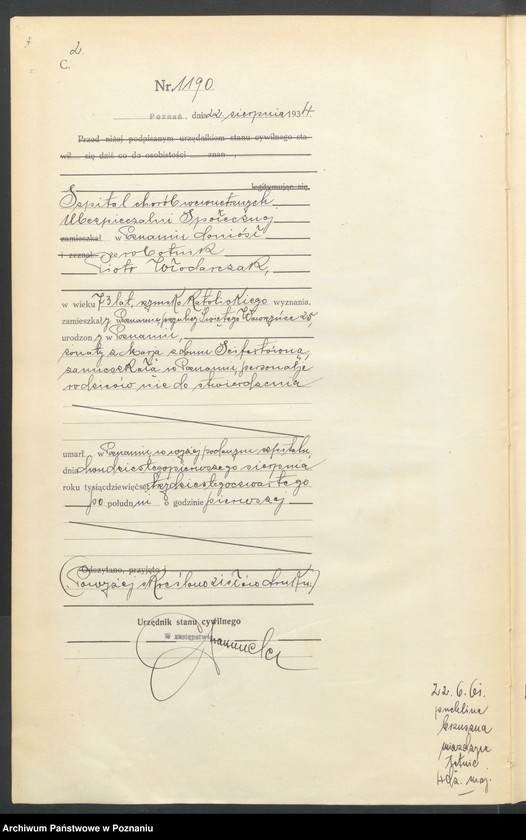 2
C.
Nr. 1190
Poznań, dnia 22. sierpnia 1934
Przed niżej podpisanym urzędnikiem stanu cywilnego sta-
wił się dziś co do osobistości znan
legitymując się
Szpital chorób wewnętrznych
Ubezpieczalni Społecznej
zamieszkał w Poznaniu doniósł
i zeznał, że robotnik
Piotr Włodarczak,
w wieku 73 lat, rzymsko katolickiego wyznania,
zamieszkały w Poznaniu, przy ulicy Świętego Wawrzyńca 25,
urodzony w Poznaniu,
żonaty z Marją z domu Seifertówną,
zamieszkałą w Poznaniu, personalje
rodziców nie do stwierdzenia
umarł w Poznaniu w wyżej podanym szpitalu
dnia dwudziestegopierwszego sierpnia
roku tysiącdziewięćset trzydziestegoczwartego
po południu o godzinie pierwszej
Odczytano, przyjęto i
(Powyżej skreślono słów druku.)
Urzędnik stanu cywilnego
W zastępstwie
22. 6. 61.
puchlina
brzuszna
miażdżyca
tętnic
Archiwum Państwowe w Poznaniu